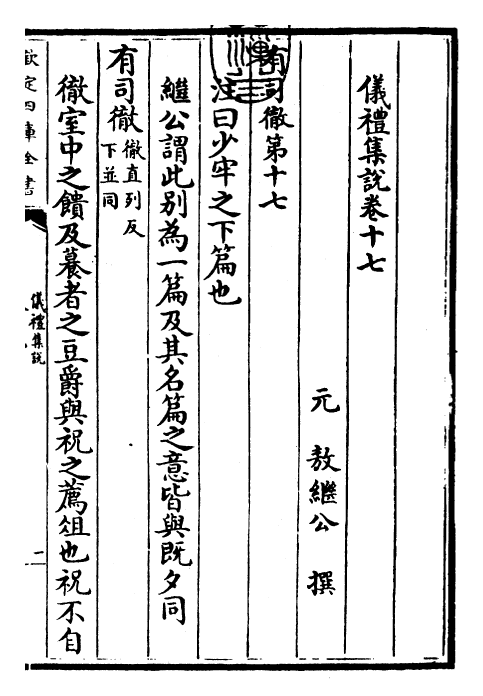 儀禮集說卷十七
元 敖繼公 撰
有司徹第十七
注曰少牢之下篇也
繼公謂此别為一篇及其名篇之意皆與既夕同
有司徹徹直列反下並同
徹室中之饋及養者之豆爵與祝之薦俎也祝不自
欽定四庫全書
儀禮集說